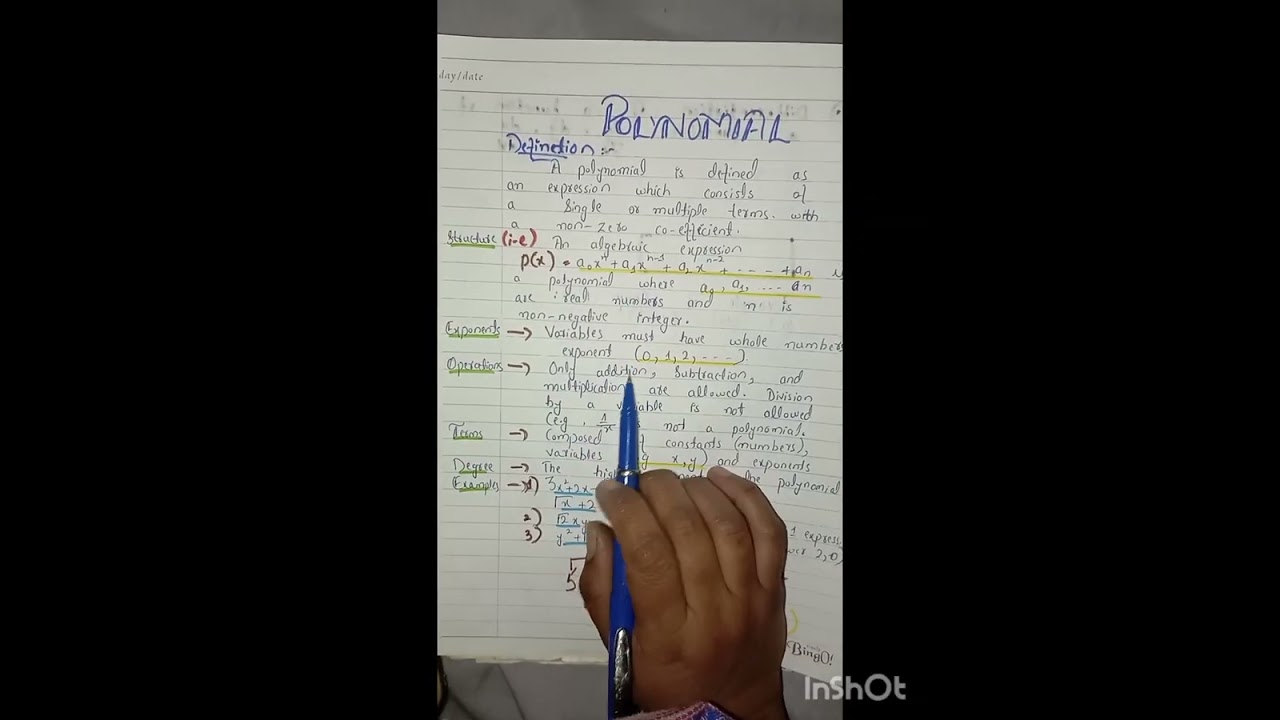 day/date
POLYNOMIAL
Definetion:-
A polynomial is defined as
an expression which consists of
a single or multiple terms. with
a non-zero co-efficient.
Structure (i-e) An algebraic expression
p(x) = a₀xⁿ + a₁xⁿ⁻¹ + a₂xⁿ⁻² + ---- + an
a polynomial where a₀, a₁, ---- an
are real numbers and 'n' is
non-negative integer.
Exponents → Variables must have whole numbers
exponent (0, 1, 2, ----).
Operations → Only addition, Subtraction, and
multiplication are allowed. Division
by a variable is not allowed
(e.g, 1/x is not a polynomial.
Terms → Composed of constants (numbers),
variables x, y) and exponents
Degree → The the polynomial
Examples → 1) 3x²+2x
√x+2
2) √2 x y
3) y²+
1 express
2,0)
5
BingO!
InShOt